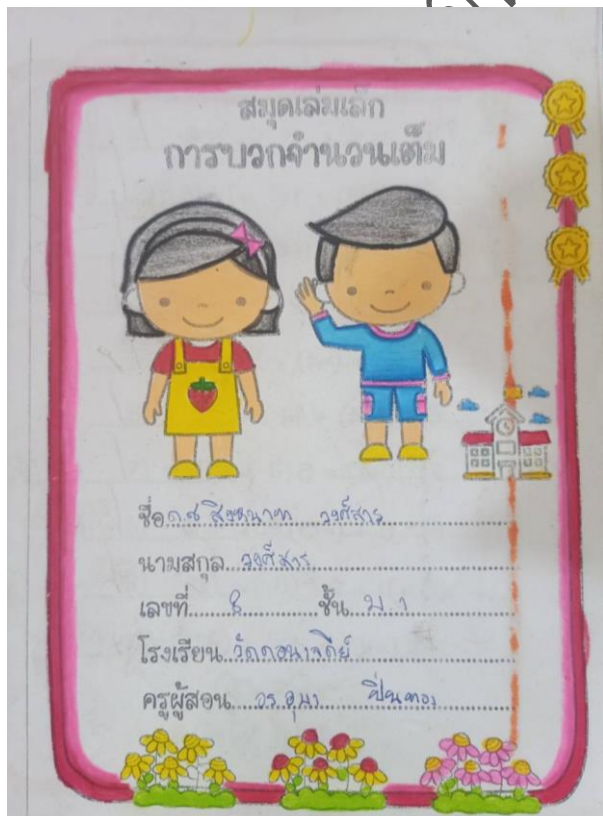 สมุดเล่มเล็ก
การบวกจำนวนเต็ม
ชื่อ ด.ช สิงหนาท วงศ์สาร
นามสกุล วงศ์สาร
เลขที่ 8 ชั้น ม 1
โรงเรียน วัดดอนเจดีย์
ครูผู้สอน ปิ่นทอง